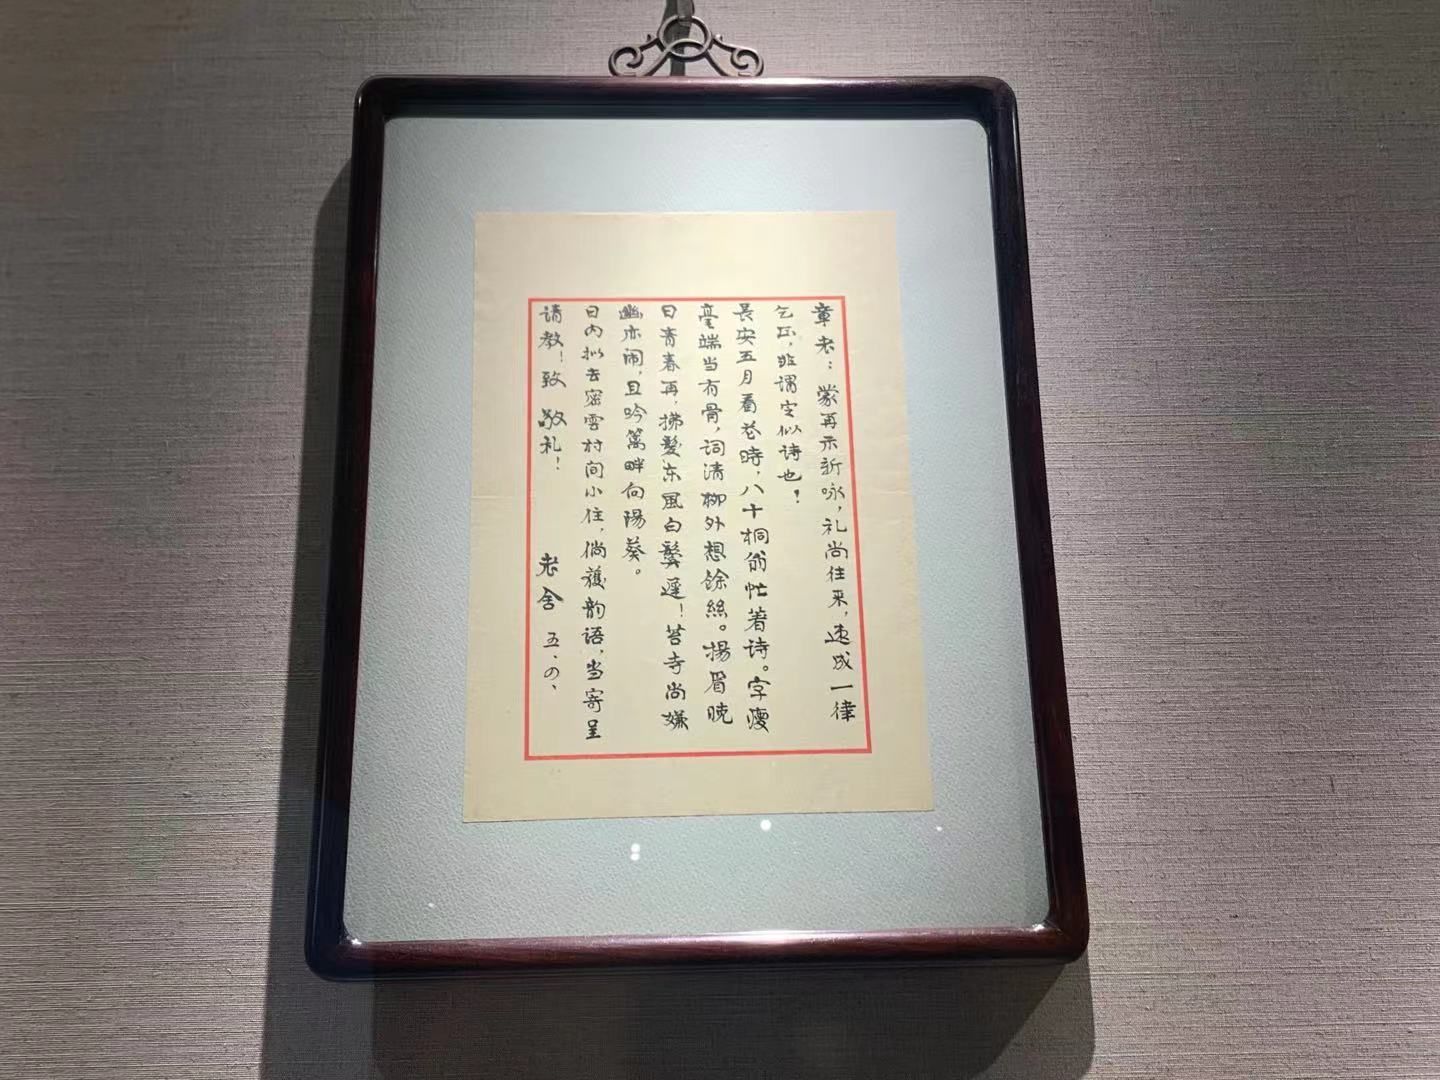 章老：蒙再示新咏，礼尚往来，速成一律
乞正，非谓定似诗也！
長安五月看花時，八十桐翁忙著诗。字瘦
毫端当有骨，词清柳外想餘絲。揚眉晓
日青春再，拂髪东風白鬓遲！苔寺尚嫌
幽亦闹，且吟篱畔向陽葵。
日内拟去密雲村间小住，倘獲韵语，当寄呈
请教！致 敬礼！
老舍 五、の、